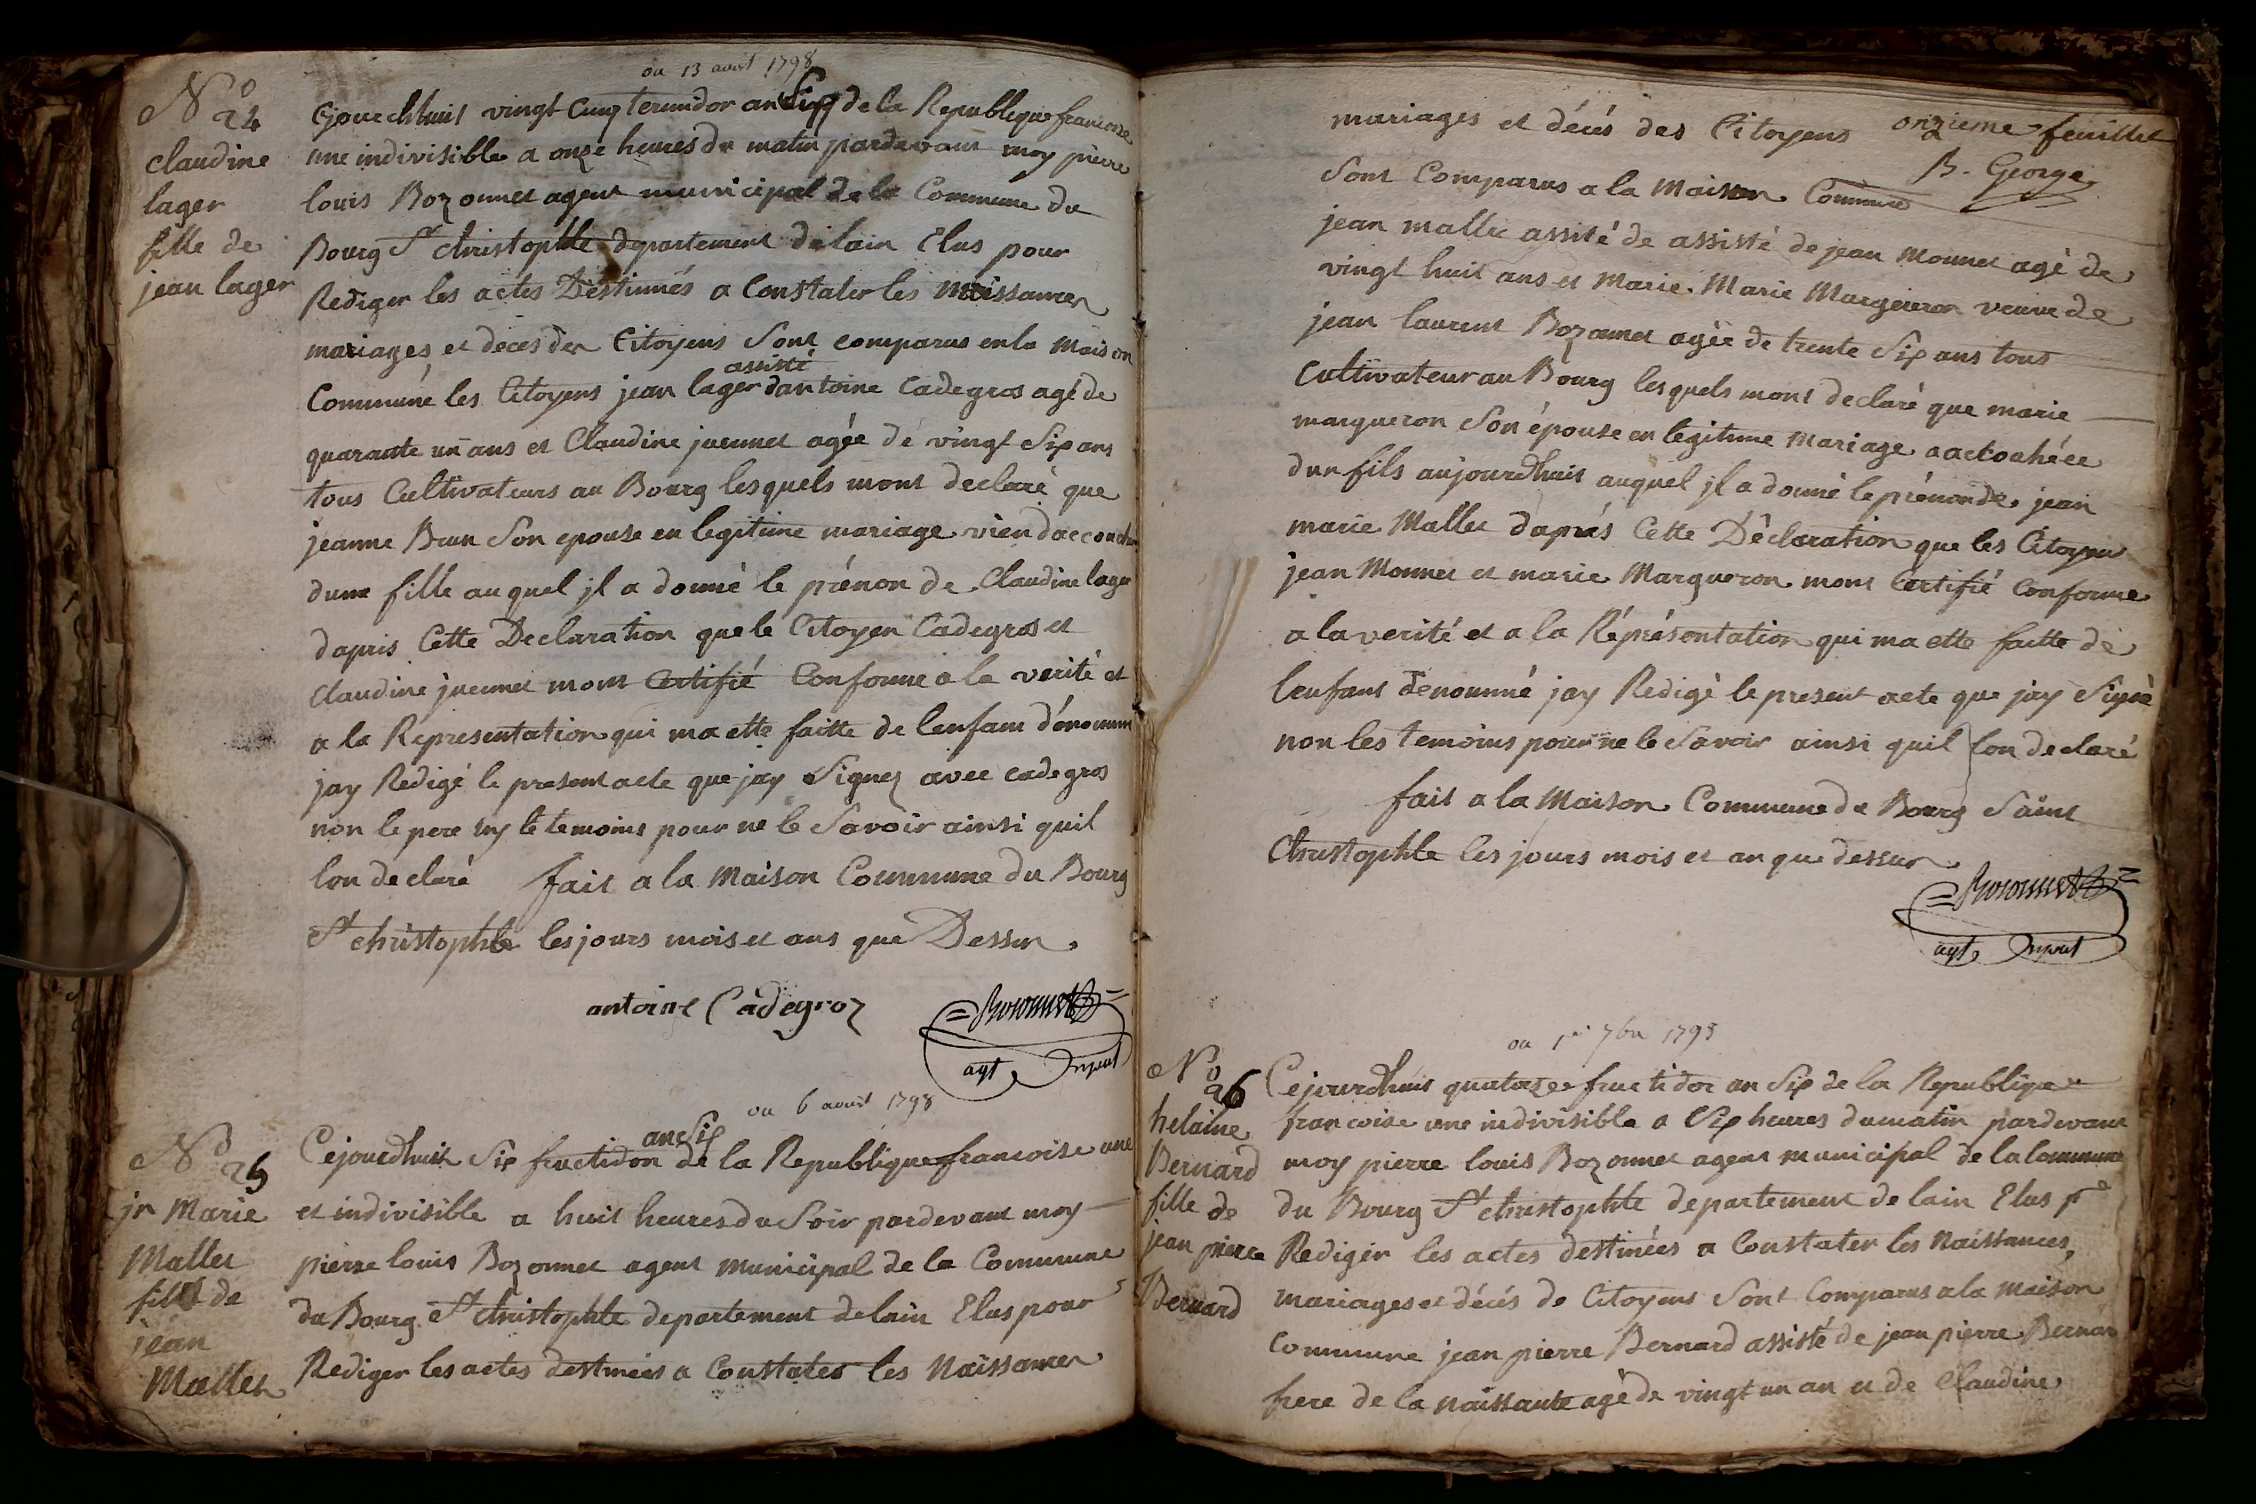 ou 13 aout 1798
N° 24
claudine
lager
fille de
jean lager
Cejourdhuit vingt cinq termidor an Six de la Republique francoise
une indivisible a onze heures du matin pardevant moy pierre
louis Bozonnet agent municipal de la Commune du
Bourg St christophle departement de lain Elus pour
Rediger les actes Destinnés a Constater les Naissances
mariages et deces des Citoyens Sont comparus en la maison
assisté
Commune les Citoyens jean lager dantoine Cadegros agé de
quarante un ans et Claudine juennet agée de vingt Six ans
tous Cultivateurs au Bourg lesquels mont declaré que
jeanne Brun Son epouse en legitime mariage vien daccoucher
dune fille au quel jl a donné le prénon de Claudine lager
dapris Cette Declaration que le Citoyen Cadegros et
Claudine juennet mont Certifié Conforme a la verité et
a la Representation qui ma ette faitte de lenfant dénomm
jay Redigé le present acte que jay Signez avec cadegros
non le pere ny le temoins pour ne le Savoir ainsi quil
lon declaré fait a la maison Commune du Bourg
St christophle les jours mois et ans que Dessur.
antoine Cadegroz
Bozonnet
agt
ou 6 aout 1798
N° 25
jn Marie
Mallet
fils de
jean
Mallet
an Six
Cejourdhuit Six fructidor de la Republique francoise une
et indivisible a huit heures du Soir pardevant moy
pierre louis Bozonnet agent municipal de la Commune
du Bourg St christophle departement de lain Elus pour
Rediger les actes destinées a Constater les Naissances
onzieme feuillet
B. George
mariages et décés des Citoyens
Sont Comparus a la Maison Commune
jean mallet assité de assisté de jean Monnet agé de
vingt huit ans et Marie Marie Margueron veuve de
jean laurent Bozonnet agée de trente Six ans tous
Cultivateur au Bourg lesquels mont declaré que marie
margueron Son épouse en legitime mariage a actouchéee
dun fils aujourdhuit auquel jl a donné le prénon de jean
marie Mallet daprés Cette Déclaration que les Citoyen
jean Monnet et marie Margueron mont Certifié Conforme
a la verité et a la Répréséntation qui ma ette faitte de
lenfant dénommé jay Redigé le present acte que jay Signé
non les temoins pour ne le Savoir ainsi quil lon declaré
fait a la Maison Commune de Bourg Saint
Christophle les jours mois et an que dessur.
Bozonnet
agt
ou 1er 7bre 1798
N° 26
helaine
Bernard
fille de
jean pierre
Bernard
Cejourdhuit quatoze fructidor an Six de la Republique
francoise une indivisible a Six heures du matin pardevant
moy pierre louis Bozonnet agent municipal de la Commune
du Bourg St christophle departement de lain Elus pr
Rediger les actes destinées a Constater les Naissances,
mariages et décés de Citoyens Sont Comparus a la maison
commune jean pierre Bernard assisté de jean pierre Bernar
frere de la naissante agé de vingt un an et de Claudine